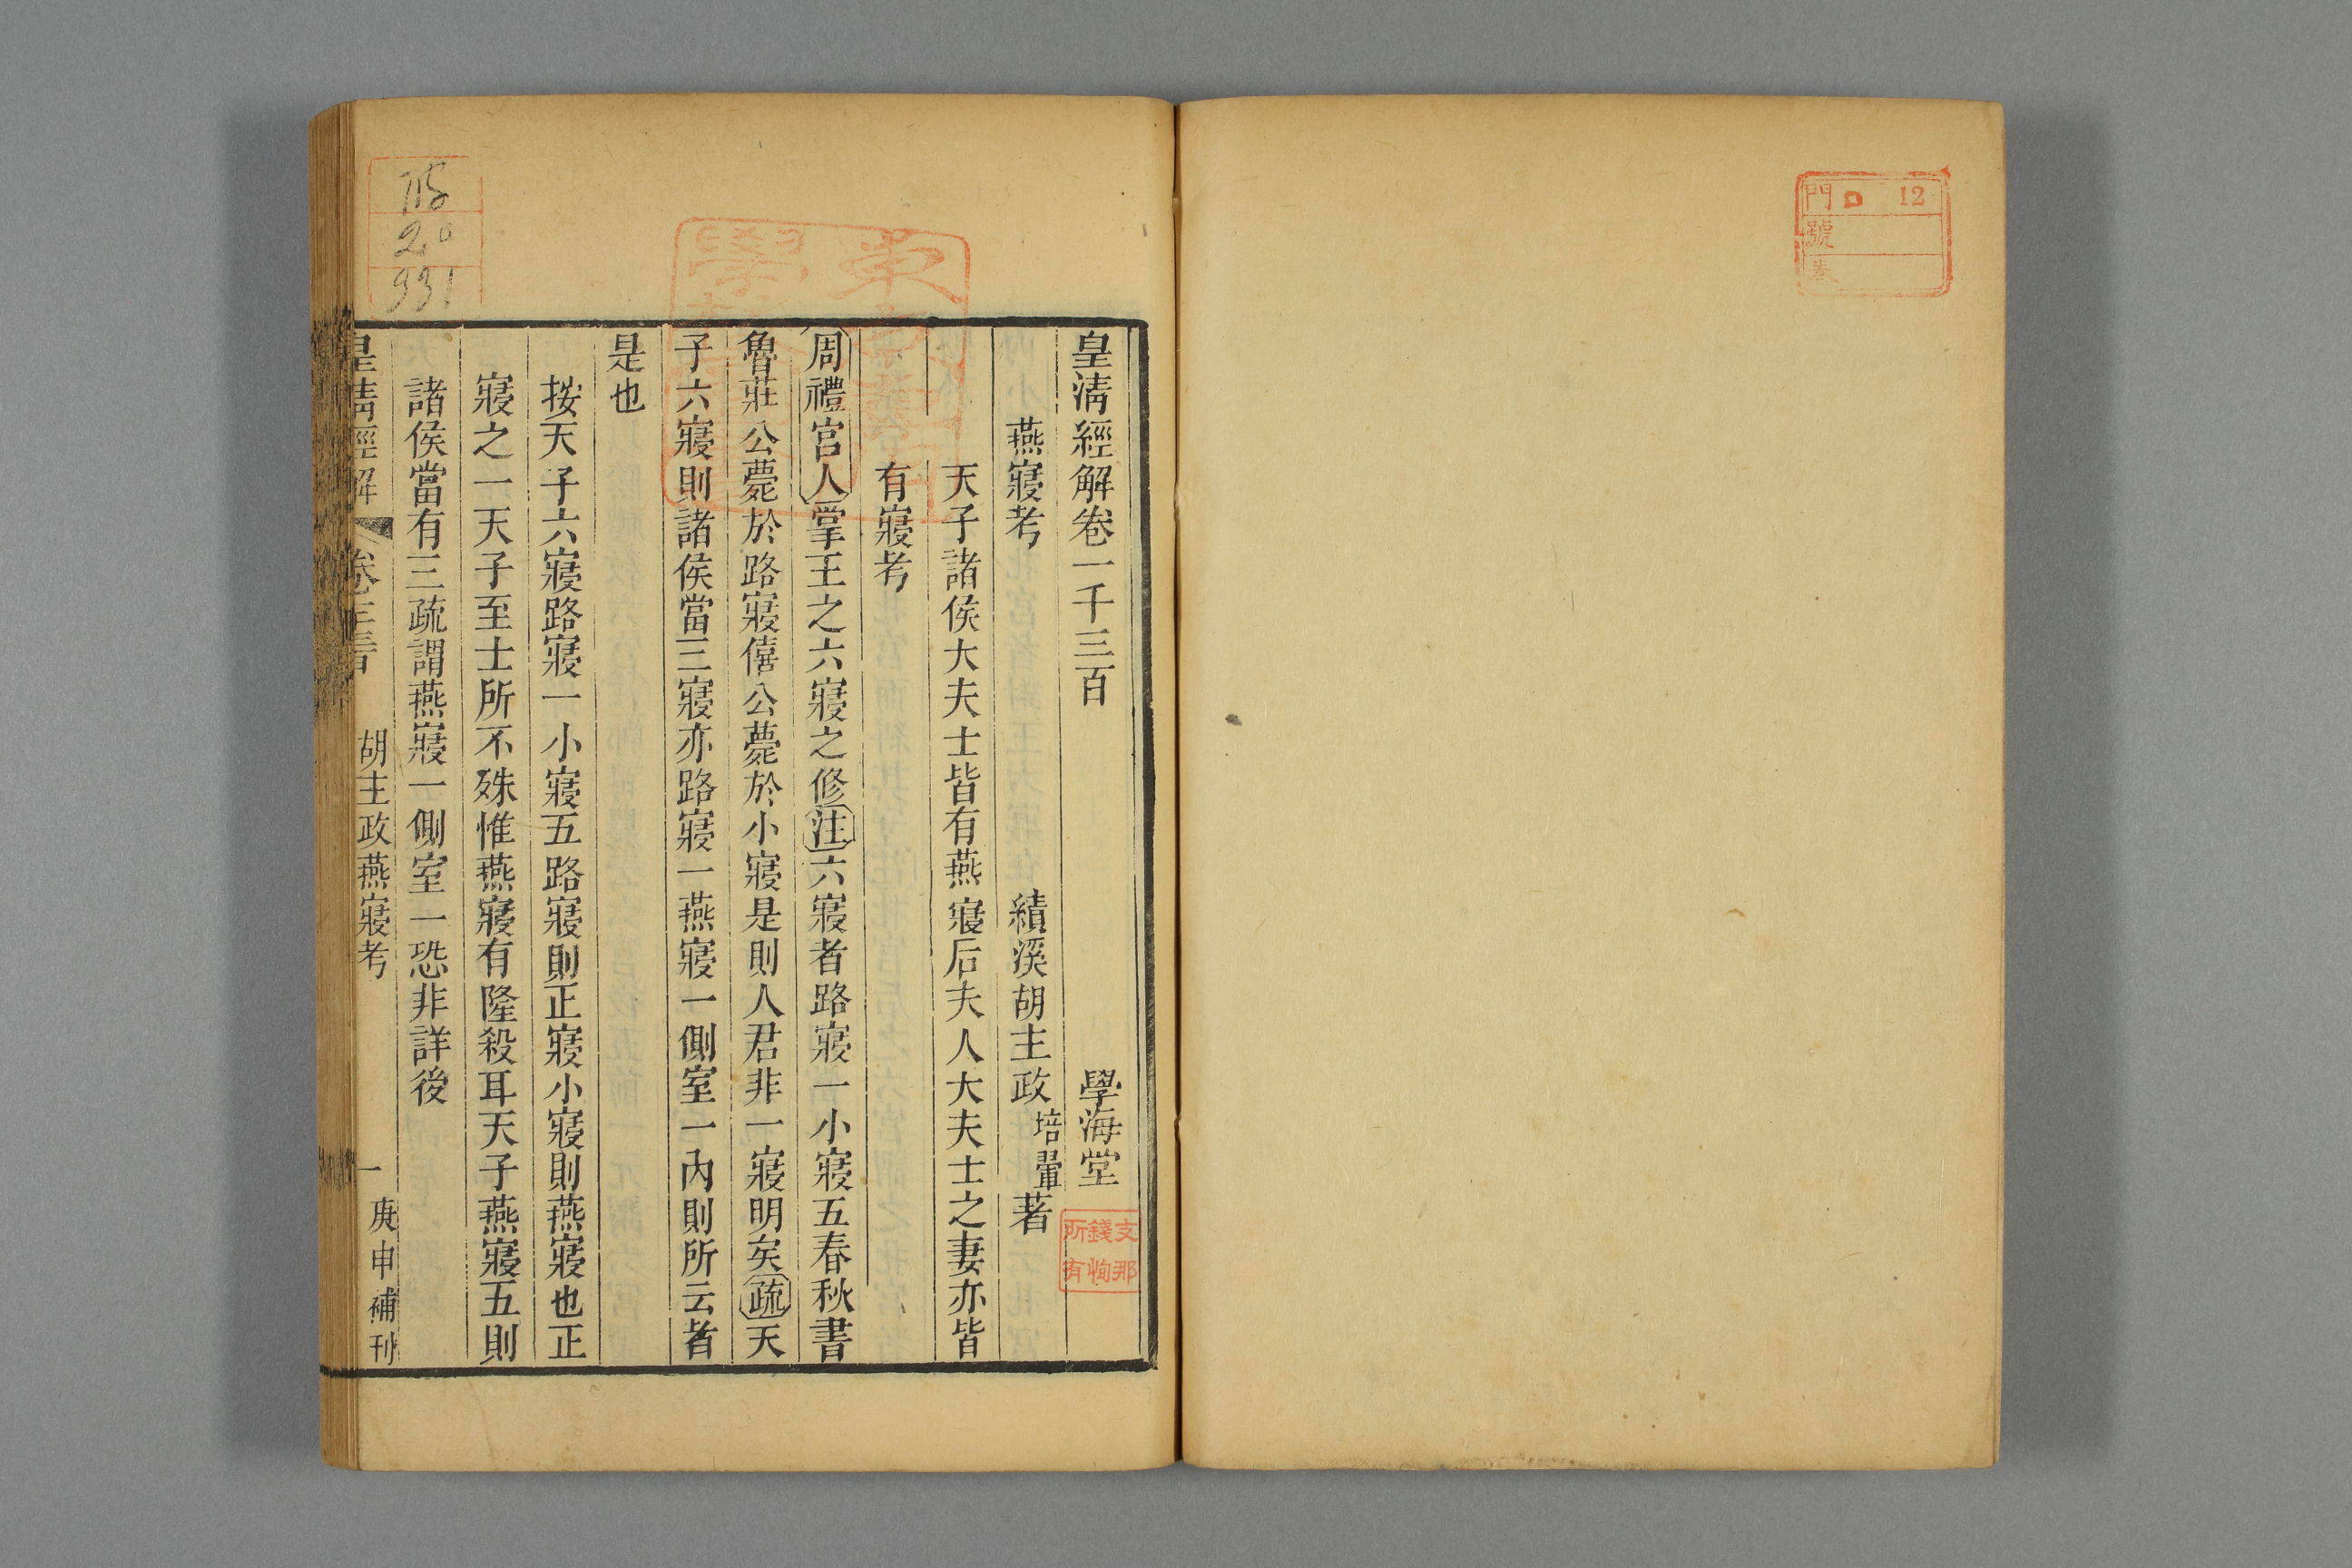 門 口 12
號
皇清經解卷一千三百
學海堂
支那
錢恂
所有
燕寢考
績溪胡主政培翬著
天子諸侯大夫士皆有燕寢后夫人大夫士之妻亦皆
有寢考
周禮宮人掌王之六寢之修注六寢者路寢一小寢五春秋書
魯莊公薨於路寢僖公薨於小寢是則人君非一寢明矣疏天
子六寢則諸侯當三寢亦路寢一燕寢一側室一內則所云者
是也
按天子六寢路寢一小寢五路寢則正寢小寢則燕寢也正
寢之一天子至士所不殊惟燕寢有隆殺耳天子燕寢五則
諸侯當有三疏謂燕寢一側室一恐非詳後
皇清經解
卷一千三百
胡主政燕寢考
一
庚申補刊
20
931